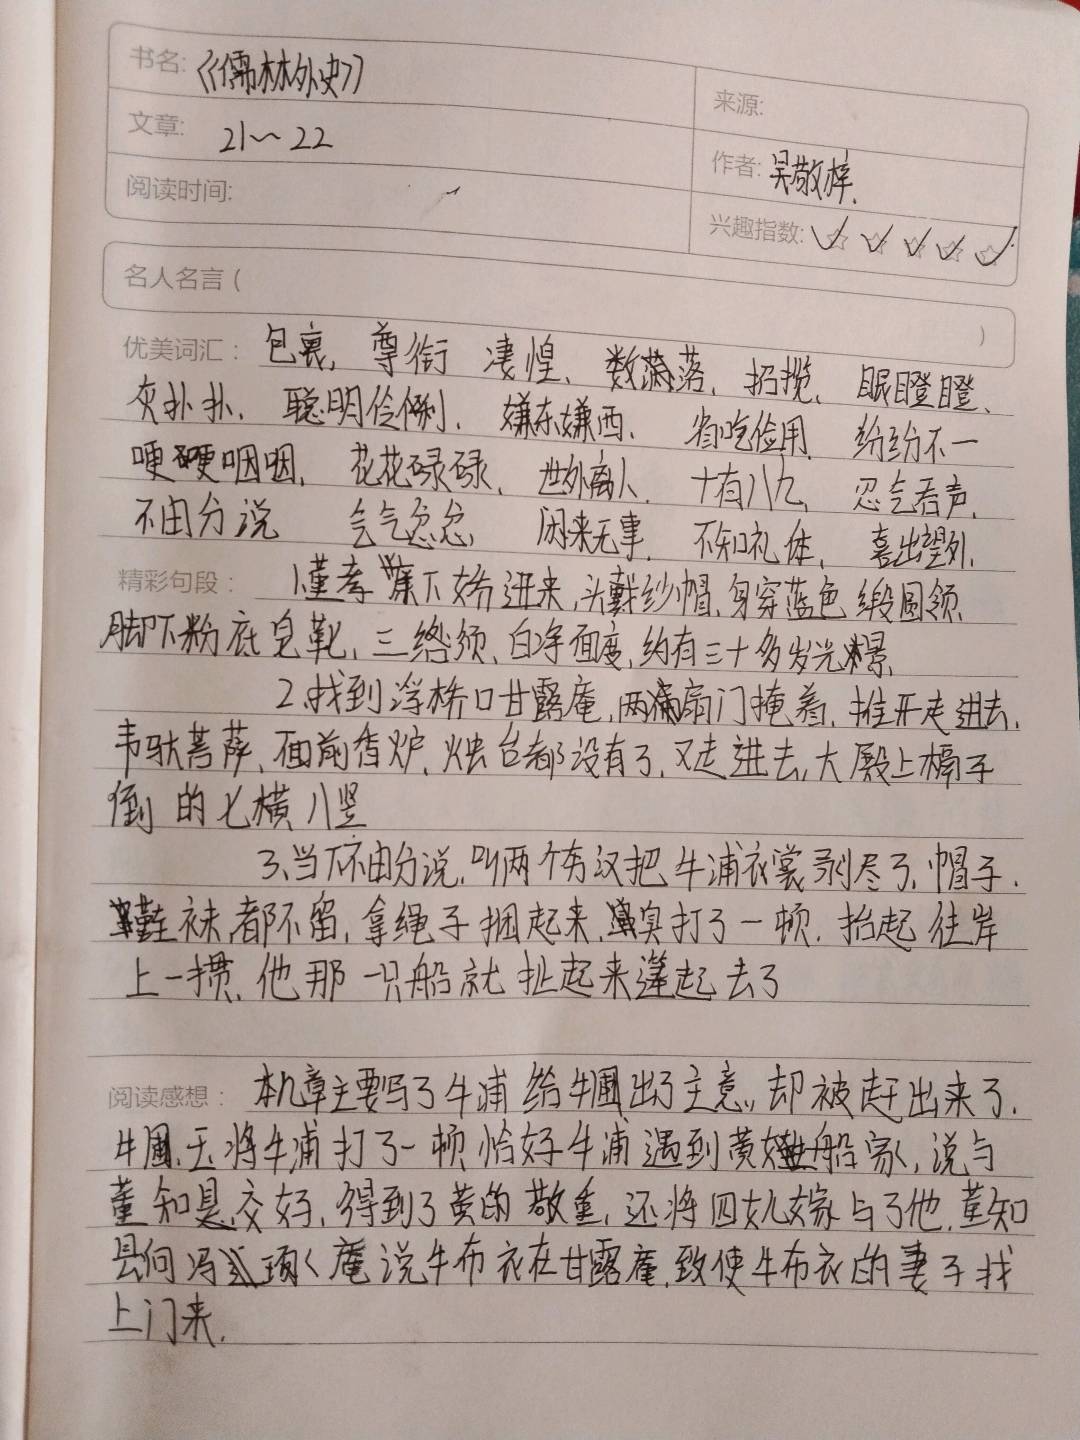 书名:《儒林外史》
来源:
文章: 21~22
作者: 吴敬梓.
阅读时间:
兴趣指数:
名人名言 ( )
优美词汇: 包裹, 尊衔 凄惶、数落、招揽、眼瞪瞪、
灰扑扑、聪明伶俐、嫌东嫌西、省吃俭用 纷纷不一
哽哽咽咽、花花碌碌、世外离人、十有八九、忍气吞声、
不由分说 气气忿忿、闲来无事、不知礼体、喜出望外、
精彩句段: 1.董孝廉下轿进来,头戴纱帽,身穿蓝色缎圆领,
脚下粉底皂靴,三绺须,白净面度,约有三十多岁光景,
2.找到浮桥口甘露庵,两扇门掩着,推开走进去,
韦驮菩萨,面前香炉,烛台都没有了,又走进去,大殿上槅子
倒的七横八竖
3、当下不由分说,叫两个夯汉把牛浦衣裳剥尽了,帽子,
鞋袜都不留,拿绳子捆起来,臭打了一顿,抬起往岸
上一掼,他那一只船就扯起来篷起去了
阅读感想: 本几章主要写了牛浦给牛圃出了主意,却被赶出来了,
牛圃玉将牛浦打了一顿 恰好牛浦遇到黄姓船家,说与
董知县交好,得到了黄的敬重,还将四女儿嫁与了他,董知
县向冯琢庵说牛布衣在甘露庵,致使牛布衣的妻子找
上门来.